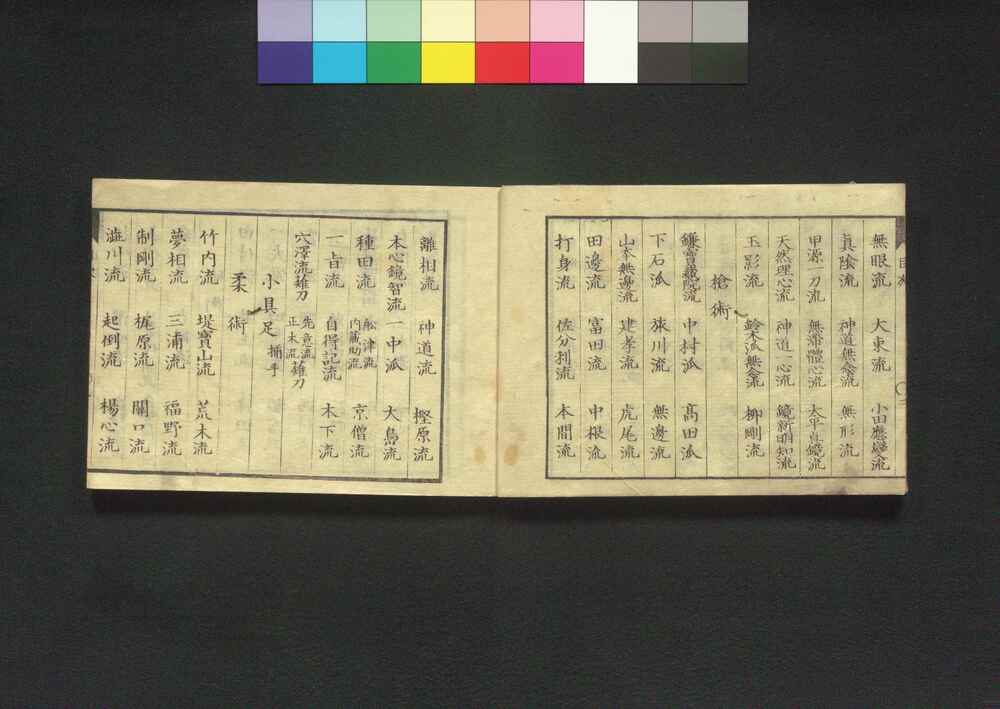 無眼流 大東流 小田應變流
眞陰流 神道無念流 無形流
甲源一刀流 無滞體心流 太平真鏡流
天然理心流 神道一心流 鏡新明知流
玉影流 鈴木派無念流 柳剛流
槍術
鎌寳藏院流 中村派 髙田派
下石派 旅川流 無邊流
山本無邊流 建孝流 虎尾流
田邊流 富田流 中根流
打身流 佐分利流 本間流
離相流 神道流 樫原流
本心鏡智流 一中派 大島流
種田流 舩津流 内藏助流 京僧流
一旨流 自得記流 木下流
穴澤流薙刀 先意流 正木流 薙刀
小具足 捕手
柔術
竹内流 堤寳山流 荒木流
夢相流 三浦流 福野流
制剛流 梶原流 關口流
澁川流 起倒流 楊心流